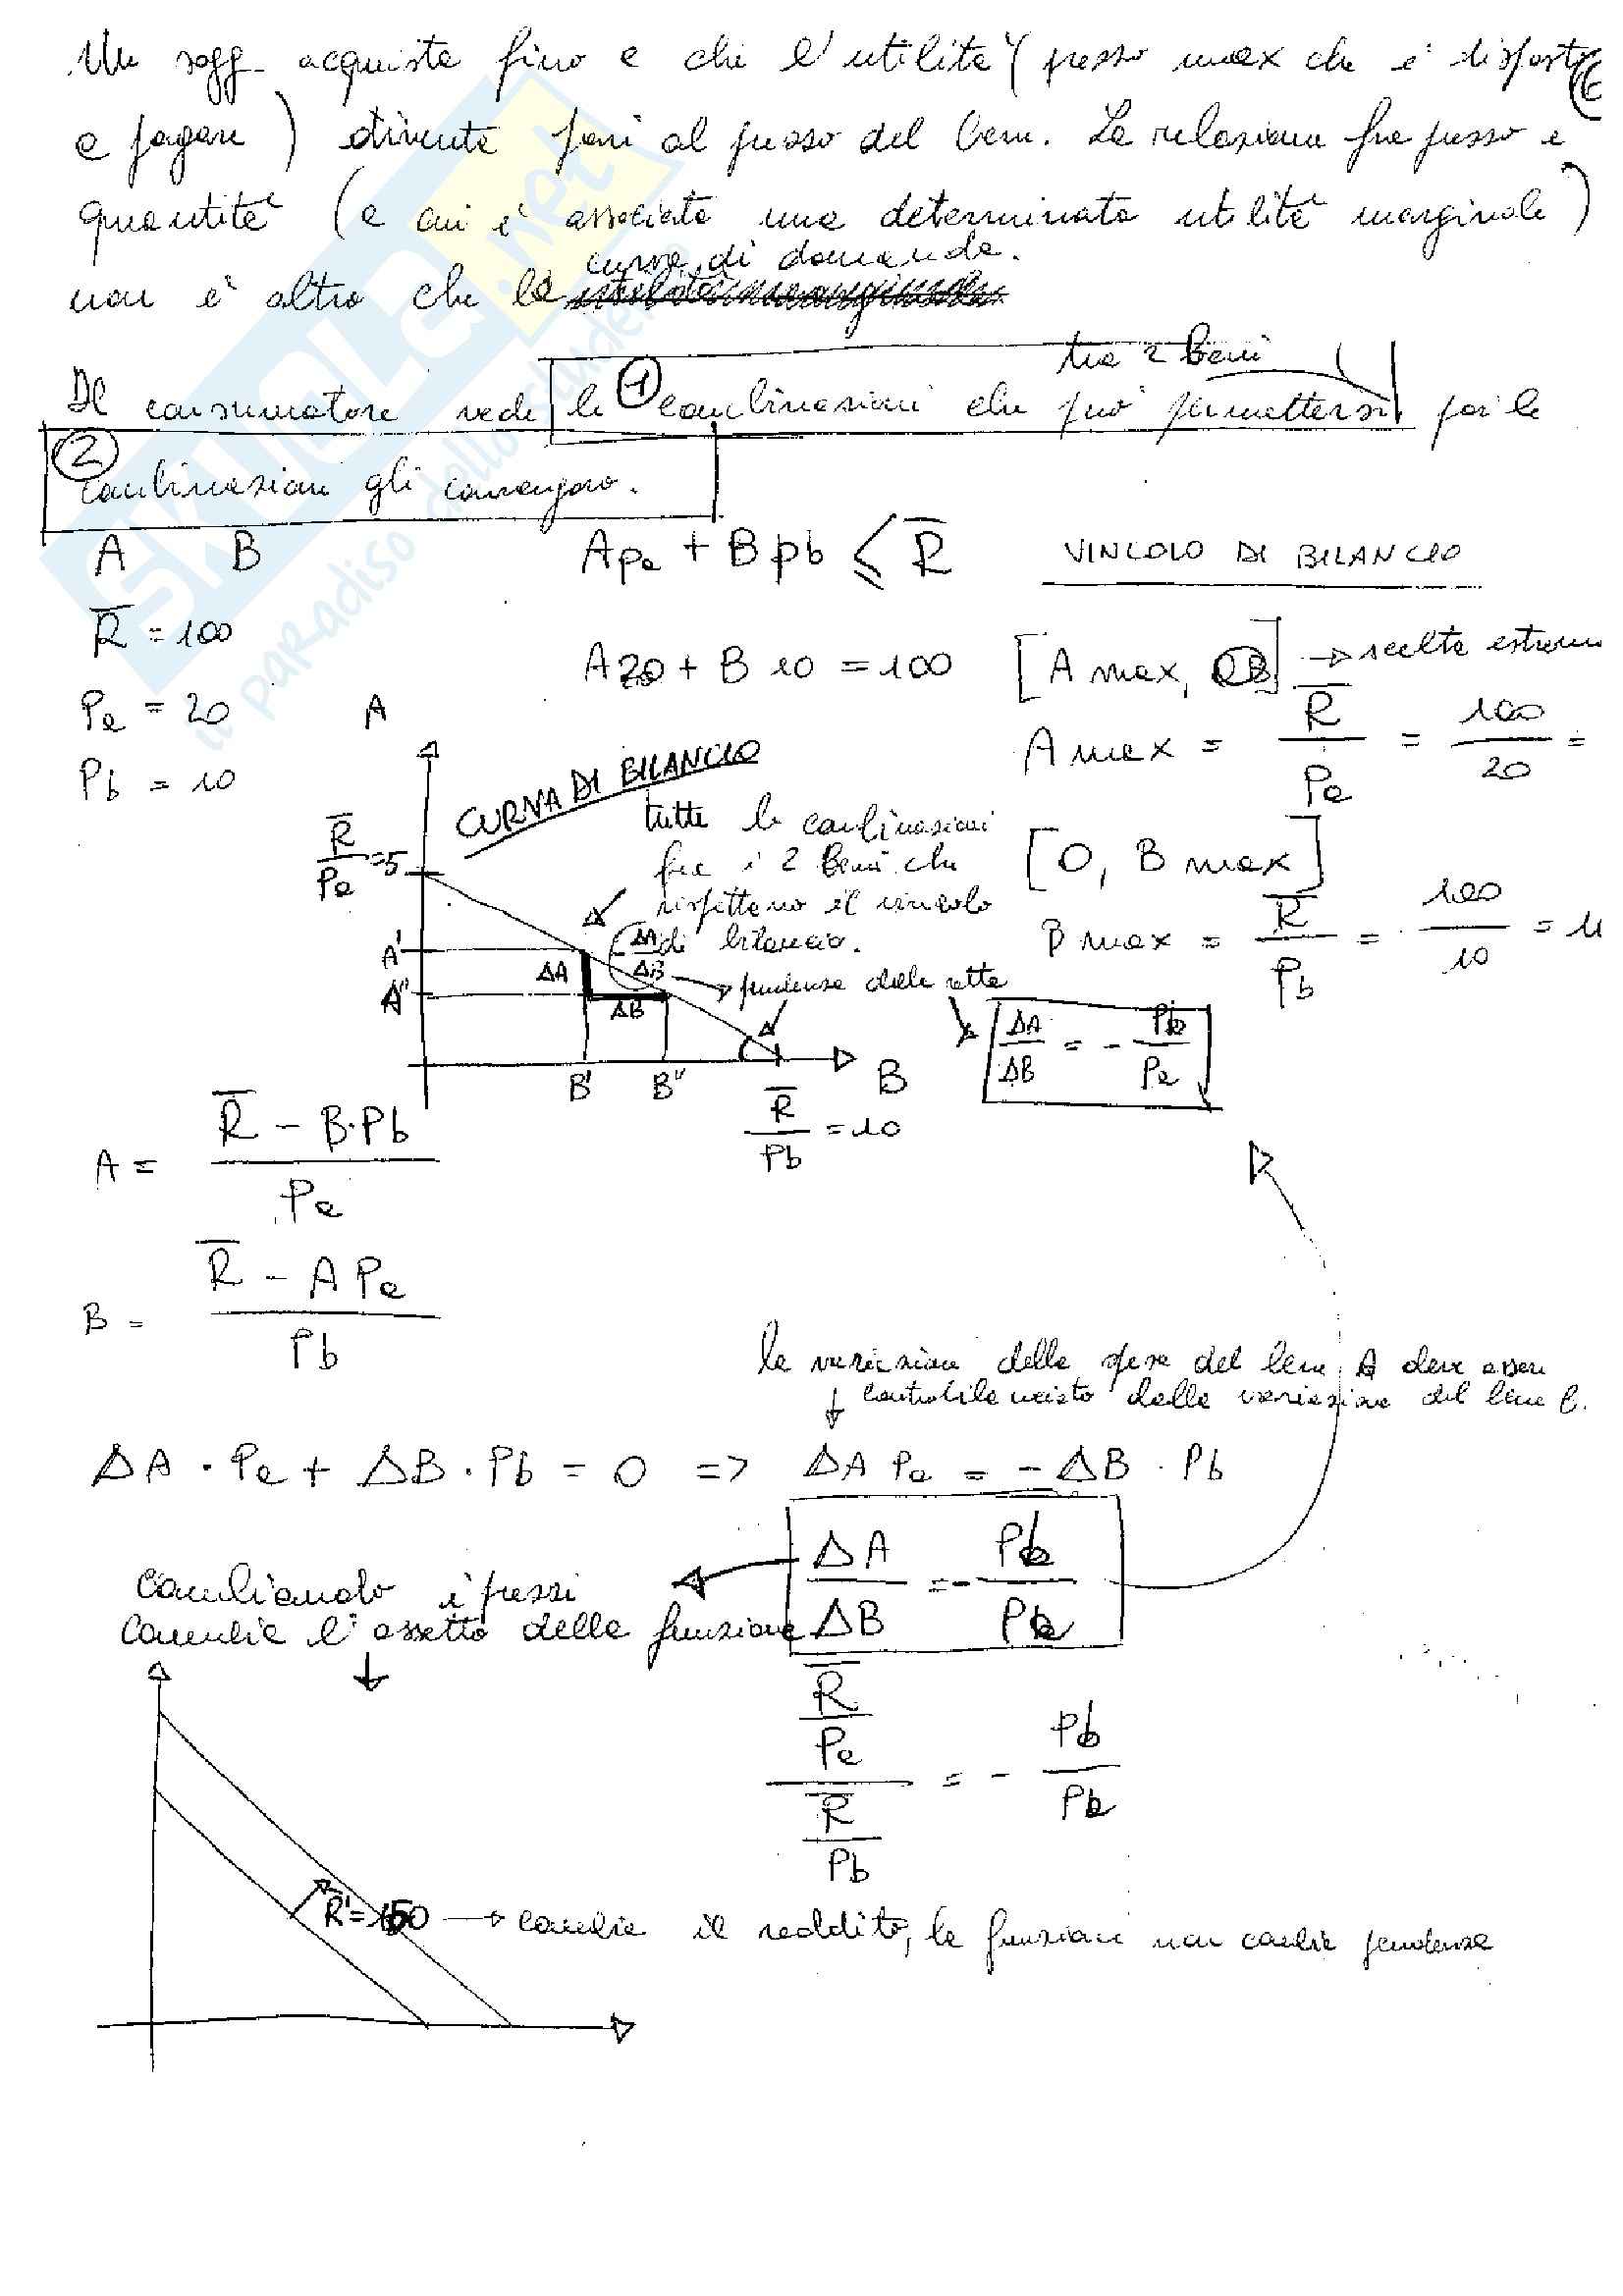 Un sogg. acquista fino a che l'utilità (prezzo max che è disposto
a pagare) diventa pari al prezzo del bene. La relazione fra prezzo e
quantità (a cui è associata una determinata utilità marginale)
curva di domanda.
non è altro che la
tra 2 beni
Il consumatore vede le 1 combinazioni che può permettersi poi le
2
combinazioni gli convengono.
A B Apa + Bpb ≤ R̅ VINCOLO DI BILANCIO
R̅ = 100
A20 + B10 = 100 [A max, 0B] → scelta estrema
Pa = 20 A
A max = R̅/Pa = 100/20 =
Pb = 10
CURVA DI BILANCIO
tutte le combinazioni
fra i 2 beni che
rispettano il vincolo
di bilancio.
[0, B max]
B max = R̅/Pb = 100/10 = 10
R̅/Pa = 5
A'
A''
ΔA
ΔB
-ΔA/ΔB → pendenza della retta
ΔA/ΔB = - Pb/Pa
B' B'' B
R̅/Pb = 10
A = R̅ - B·Pb / Pa
B = R̅ - A Pa / Pb
la variazione della spesa del bene A deve essere
controbilanciata dalla variazione del bene B.
ΔA · Pa + ΔB · Pb = 0 => ΔA Pa = - ΔB · Pb
ΔA/ΔB = - Pb/Pa
Cambiando i prezzi
Cambia l'assetto della funzione
R̅/Pa / R̅/Pb = - Pb/Pa
R' = 150 → cambia il reddito, la funzione non cambia pendenza
SKUOLA.net
il paradiso dello studente